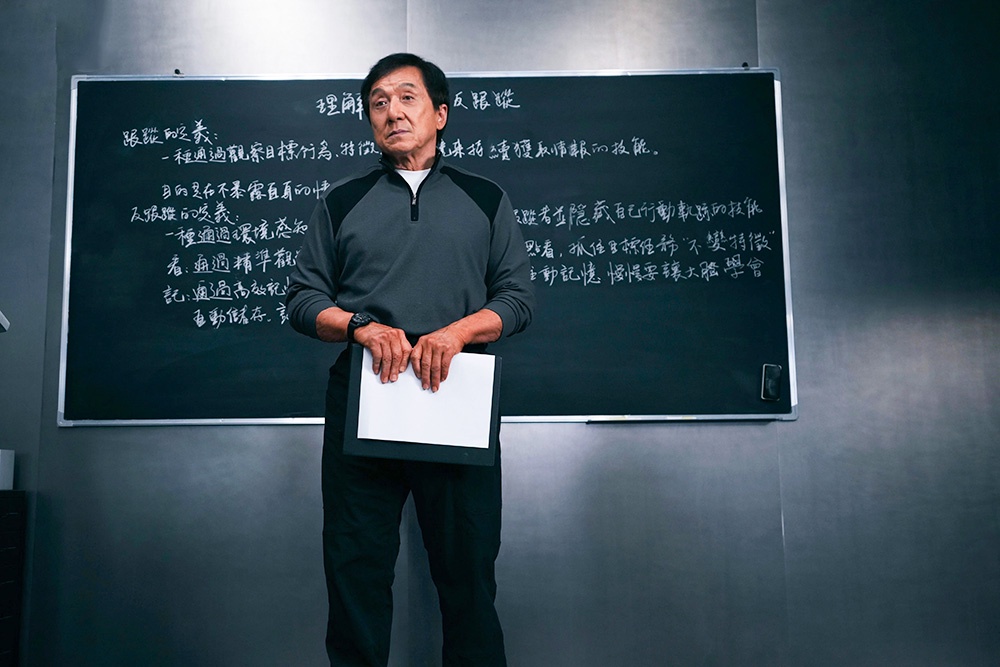 理解 反跟蹤
跟蹤的定義:
一種通過觀察目標行為、特徵 來持續獲取情報的技能。
目的是在不暴露自真的情
反跟蹤的定義:
一種通過環境感知 蹤者並隱藏自己行動軌跡的技能
看:通過精準觀 點看,抓住目標任務"不變特徵"
記:通過高效記 主動記憶 慢慢要讓大腦學會
自動儲存。